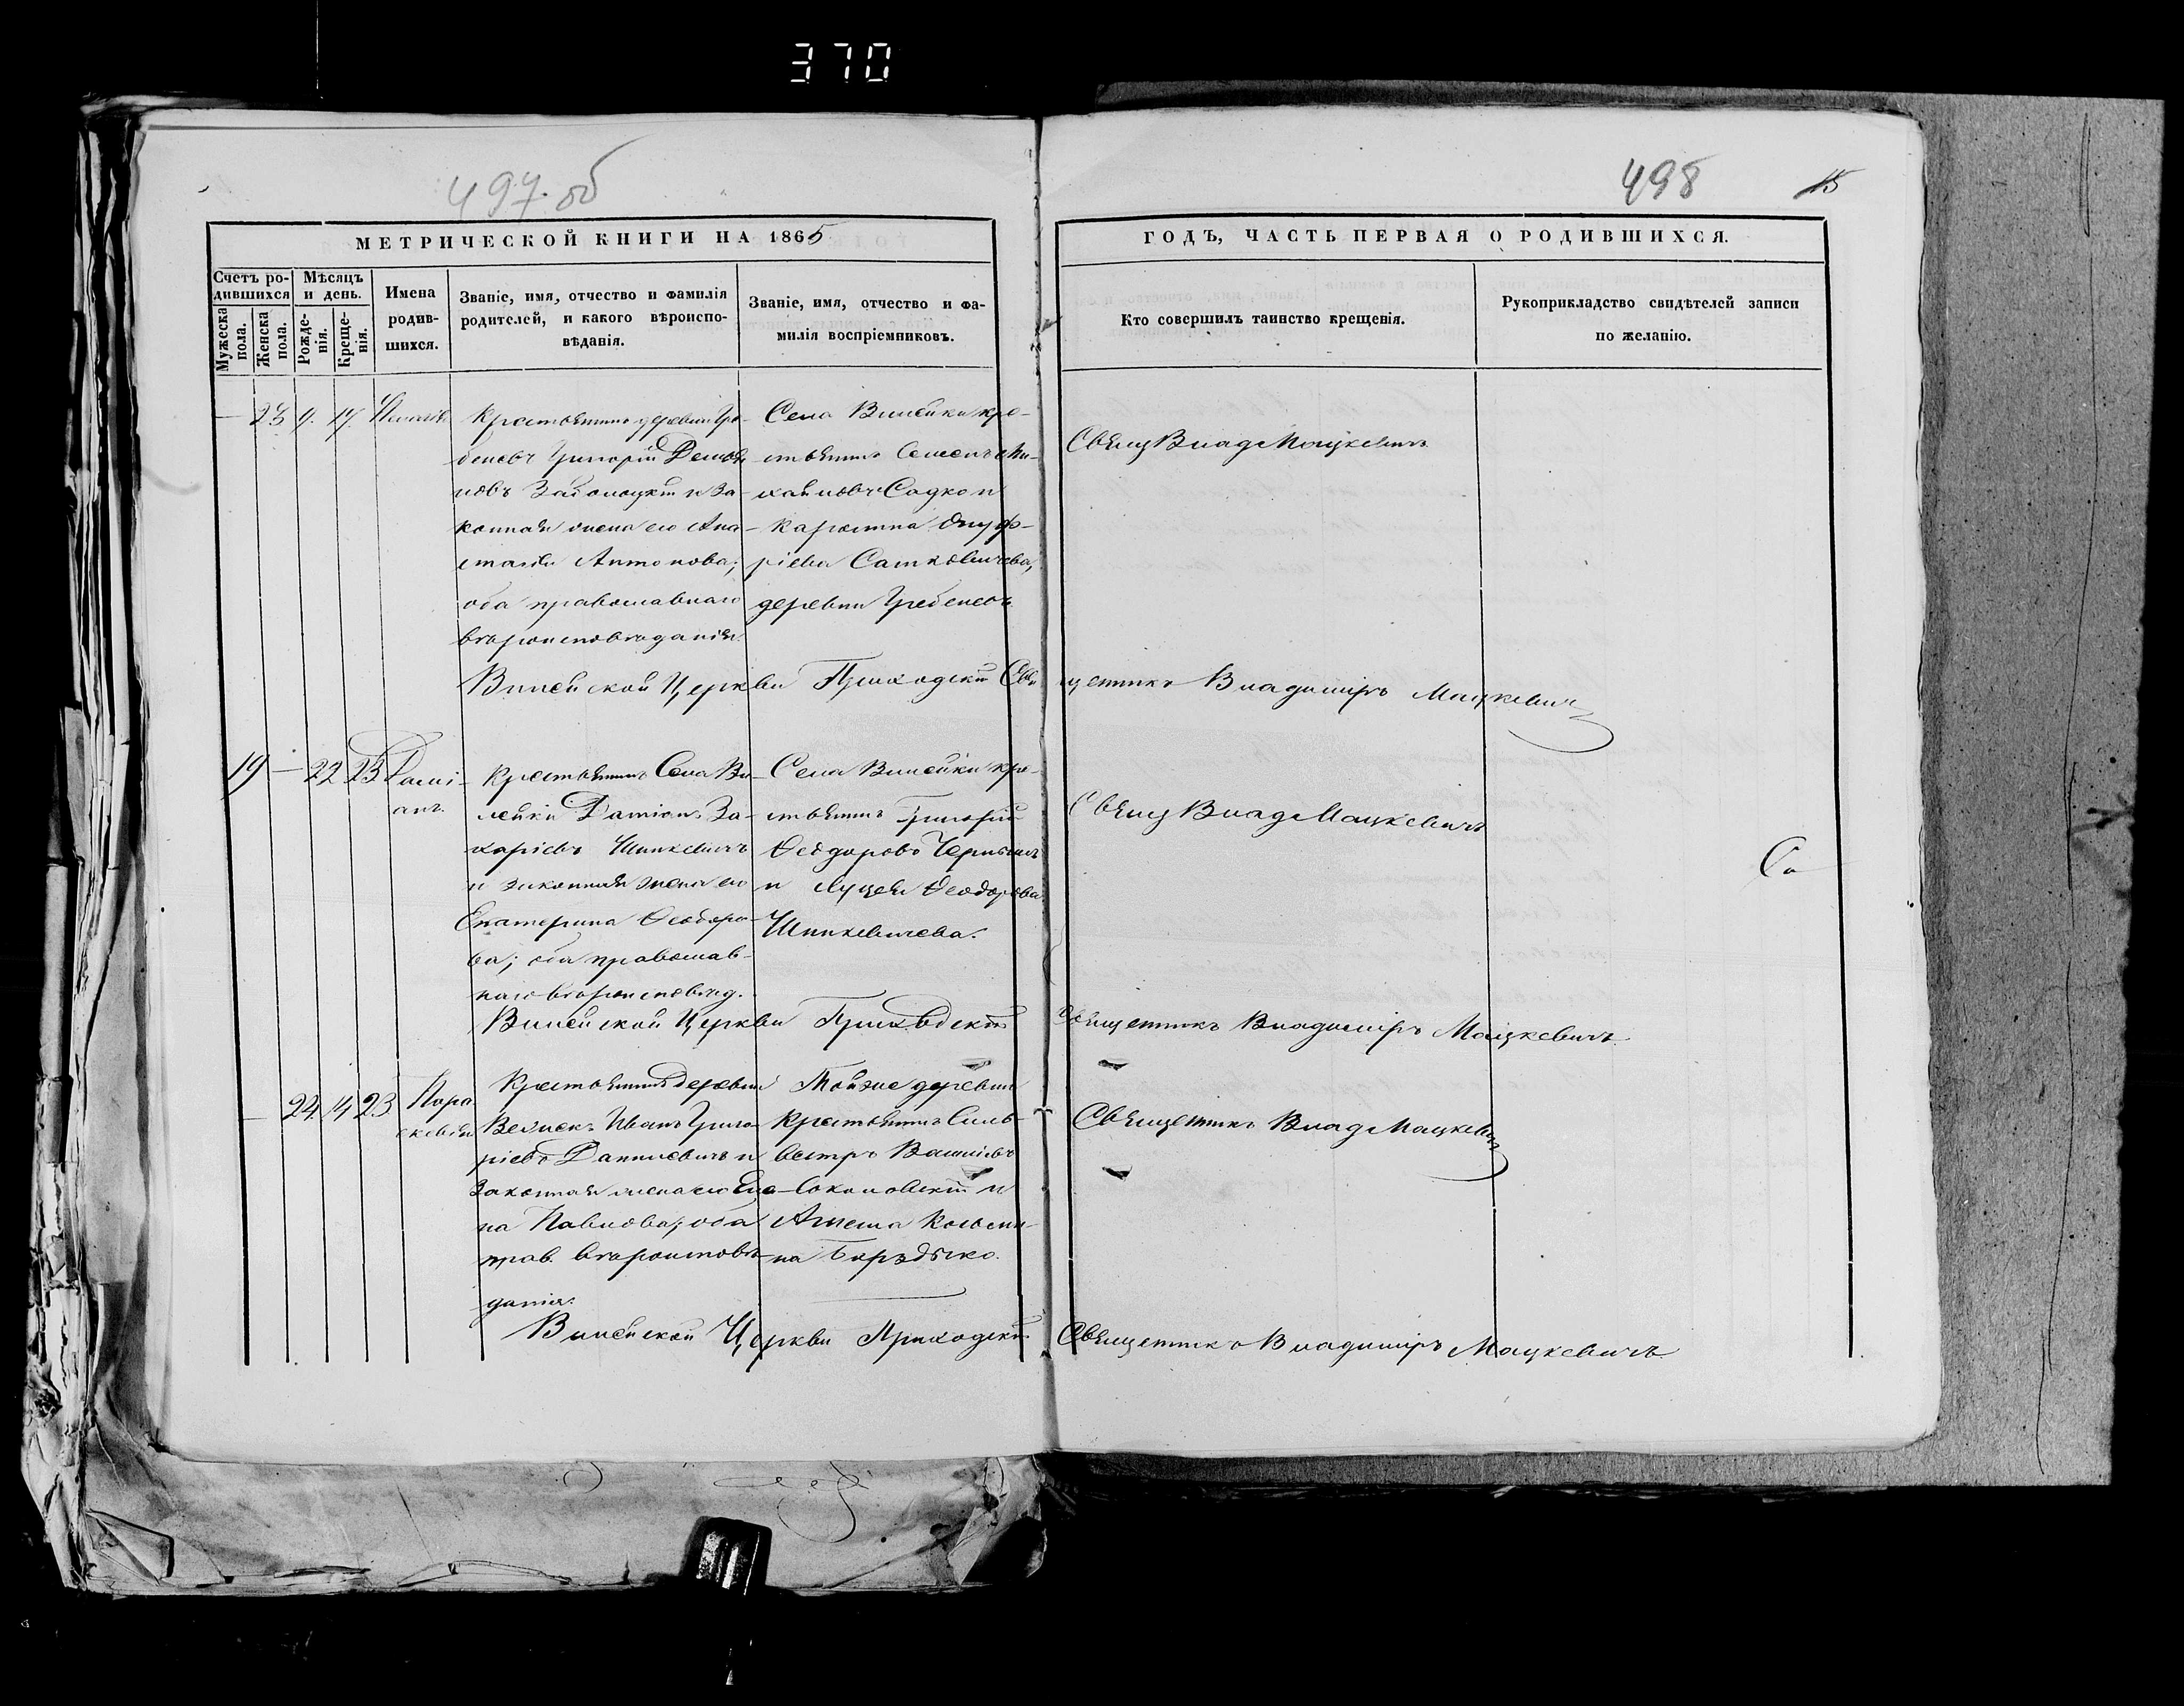 370
497 об
498
15
МЕТРИЧЕСКОЙ КНИГИ НА 1865
ГОДЪ, ЧАСТЬ ПЕРВАЯ О РОДИВШИХСЯ.
Счетъ родившихся
Мужеска пола.
Женска пола.
Мѣсяцъ и день.
Рожденія.
Крещенія.
Имена родившихся.
Званіе, имя, отчество и фамилія
родителей, и какого вѣроиспо-
вѣданія.
Званіе, имя, отчество и фа-
милія воспріемниковъ.
Кто совершилъ таинство крещенія.
Рукоприкладство свидѣтелей записи
по желанію.
— 23 9. 17. Пелагія
Крестьянинъ деревни Гре-
беневъ Григорій Демья-
новъ и за-
конная жена его Ана-
стасія Антонова;
оба православнаго
вѣроисповѣданія.
Села Вилейки кре-
стьянинъ Семенъ Ми-
хайловъ Садко и
Каролина Онуф-
ріева
деревни Гребеневъ
Свящ Влад Мацкевичъ
Вилейской Церкви Приходскій Священникъ Владиміръ Мацкевичъ
19 — 22 23 Даміанъ
Крестьянинъ Села Ви-
лейки Даміанъ За-
харіевъ Шинкевичъ
и законная жена его
Екатерина Ѳеодоро-
ва; оба православ-
наго вѣроисповѣд.
Села Вилейки кре-
стьянинъ Григорій
Ѳеодоровъ
и Луція Ѳеодорова
Шинкевичева.
Свящ Влад Мацкевичъ
Вилейской Церкви Приходскій Священникъ Владиміръ Мацкевичъ
— 24 14 23 Параскевія
Крестьянинъ деревни
Иванъ Григо-
ріевъ Данилевичъ и
законная жена его Еле-
на Павлова; оба
прав. вѣроисповѣ-
данія.
Той же деревни
Крестьянинъ Силь-
вестръ
Соколовскій и
на
Священникъ Влад Мацкевичъ
Вилейской Церкви Приходскій Священникъ Владиміръ Мацкевичъ